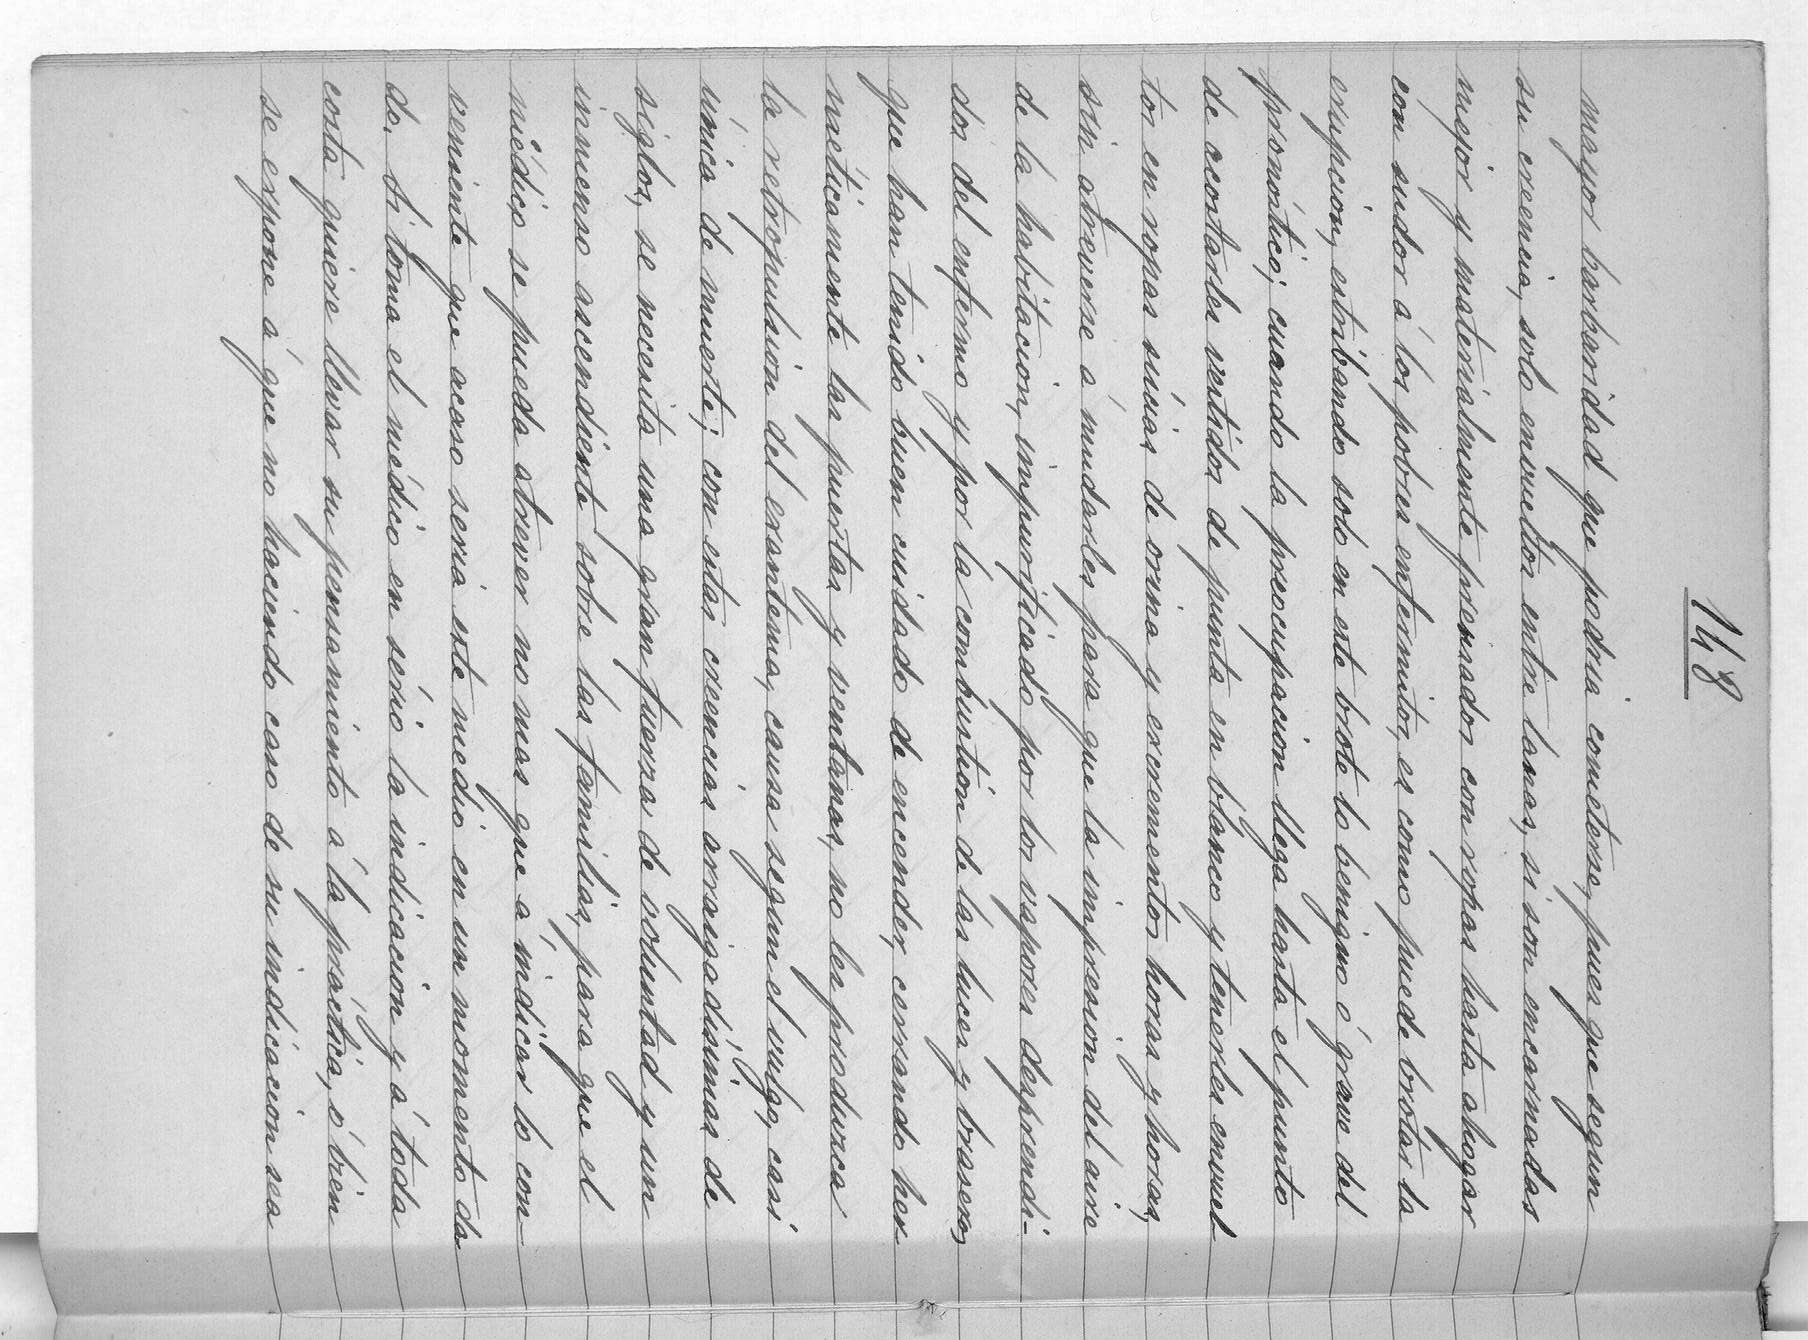 148
mayor barbaridad que podria cometerse, pues que segun
su creencia, solo envueltos entre lanas, si son encarnadas
mejor y materialmente prensados con ropas hasta ahogar
con sudor á los pobres enfermitos, es como puede brotar la
erupcion, estribando solo en este brote lo benigno ó grave del
pronóstico; cuando la preocupacion llega hasta el punto
de acostarles vestidos de punta en blanco y tenerles envuel
tos en ropas súcias de orina y excrementos horas y horas,
sin atreverse á mudarles para que la impresion del aire
de la habitacion, impurificado por los vapores desprendi-
dos del enfermo y por la combustion de las luces y braseros,
que han tenido buen cuidado de encender, cerrando her
méticamente las puertas y ventanas, no les produzca
la retropulsion del exantema, causa segun el vulgo, casi
única de muerte; con estas creencias arraigadísimas de
siglos, se necesita una gran fuerza de voluntad y un
inmenso ascendiente sobre las familias, para que el
médico se pueda atrever no mas que á indicar lo con
veniente que acaso seria este medio en un momento da
do. Si toma el médico en sério la indicacion y á toda
costa quiere llevar su pensamiento á la práctica, ó bien
se expone á que no haciendo caso de su indicacion sea